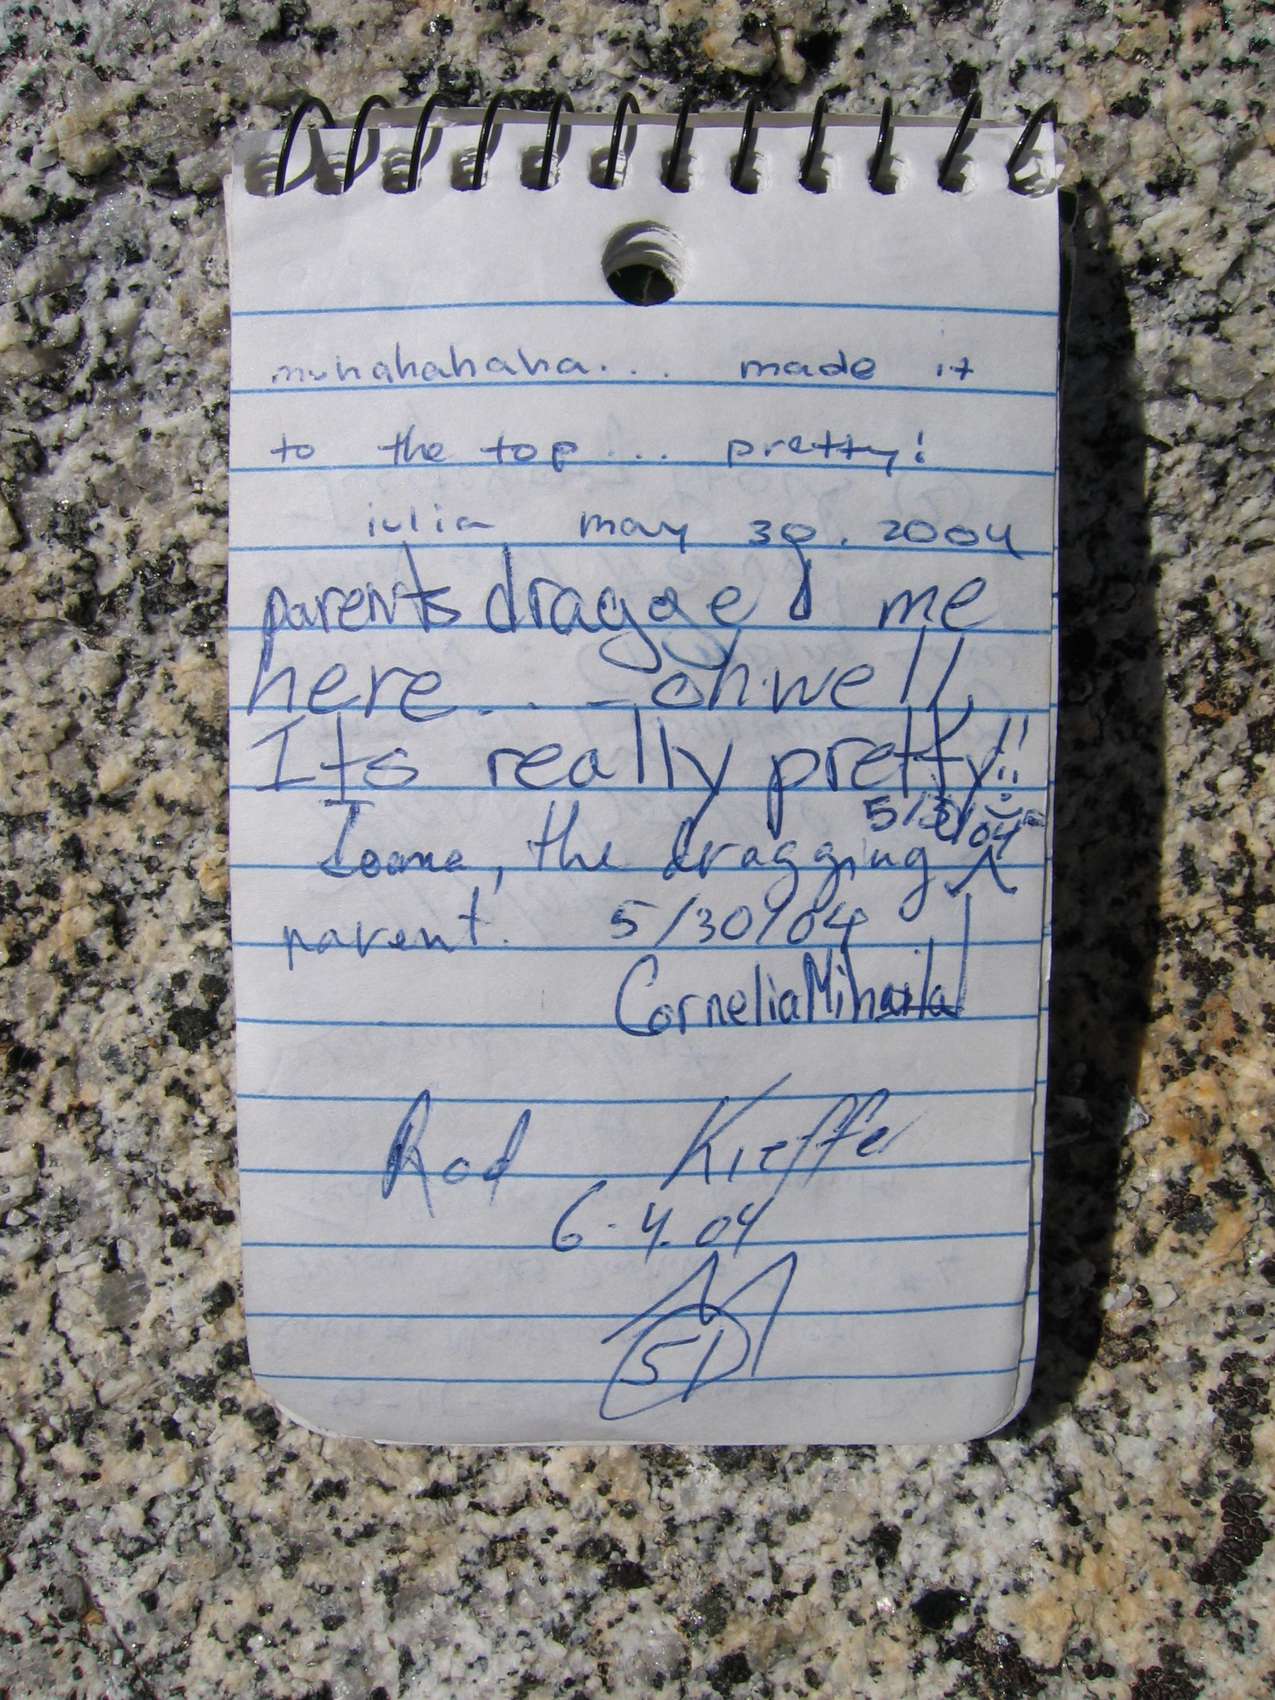 muhahahaha... made it
to the top... pretty!
iulia may 30, 2004
parents dragged me
here... - oh well,
Its really pretty!!
5/30/04
Ioana, the dragging
parent. 5/30/04
Cornelia Mihaila
Rod Kieffer
6.4.04